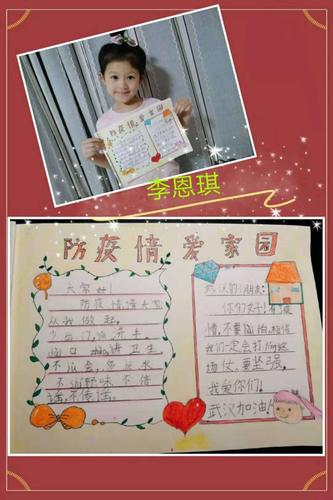 防疫情爱家园
李恩琪
防疫情爱家园
大家好!
防疫情
从我做起,
少出门,勤洗手
戴口 讲卫生
不聚会,多喝水
不 野味不传
谣,不信谣。
武汉的小朋友:
你们好!有疫
情,不要怕,相信
我们一定会打 这
场仗,要坚强,
我爱你们!
武汉加油!